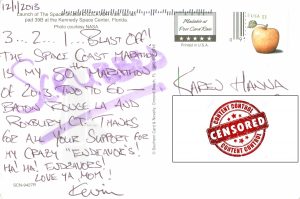 12/1/2013
Launch of The Space
and 39B at the Kennedy Space Center, Florida.
Photo courtesy NASA
3...2...1...BLAST OFF!
THE SPACE COAST MARATHON
IS MY 50TH MARATHON
OF 2013. TWO TO GO -
BATON ROUGE LA AND
ROXBURY CT. THANKS
FOR ALL YOUR SUPPORT FOR
MY CRAZY "ENDEAVOR'S!
HA! HA! ENDEAVORS!
LOVE YA MOM!
KEVIN
SCN-9407R
Mailable at
Post Card Rate
PRINTED IN U.S.A.
USA
KAREN HANNA
CONTENT CONTROL
CENSORED
CONTENT CONTROL